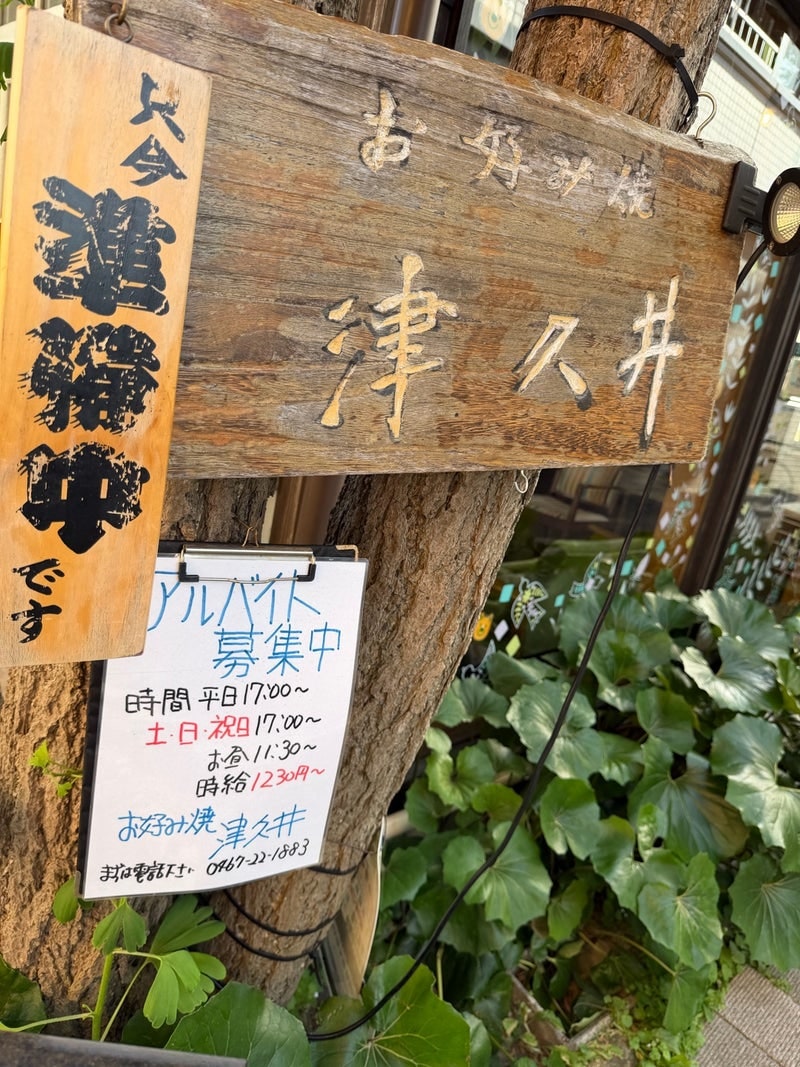 只今
準備中
です
お好み焼
津久井
アルバイト
募集中
時間 平日17:00〜
土・日・祝日17:00〜
お昼11:30〜
時給1230円〜
お好み焼 津久井
まずは電話下さい 0467-22-1883